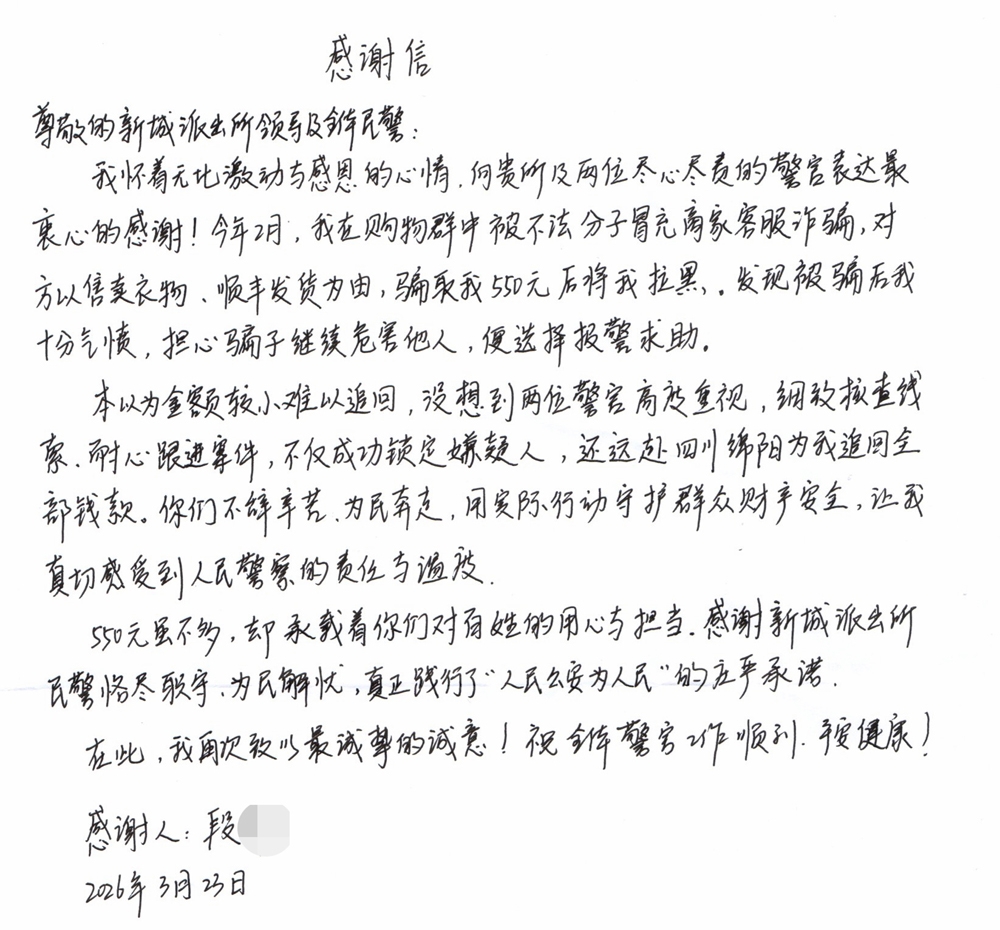 感谢信
尊敬的新城派出所领导及全体民警：
我怀着无比激动与感恩的心情，向贵所及两位尽心尽责的警官表达最
衷心的感谢！今年2月，我在购物群中被不法分子冒充商家客服诈骗，对
方以售卖衣物、顺丰发货为由，骗取我550元后将我拉黑，。发现被骗后我
十分气愤，担心骗子继续危害他人，便选择报警求助。
本以为金额较小难以追回，没想到两位警官高度重视，细致核查线
索、耐心跟进案件，不仅成功锁定嫌疑人，还远赴四川绵阳为我追回全
部钱款。你们不辞辛苦、为民奔走，用实际行动守护群众财产安全，让我
真切感受到人民警察的责任与温度.
550元虽不多，却承载着你们对百姓的用心与担当.感谢新城派出所
民警恪尽职守、为民解忧，真正践行了“人民公安为人民”的庄严承诺.
在此，我再次致以最诚挚的诚意！祝全体警官工作顺利.平安健康！
感谢人：段
2026年3月23日